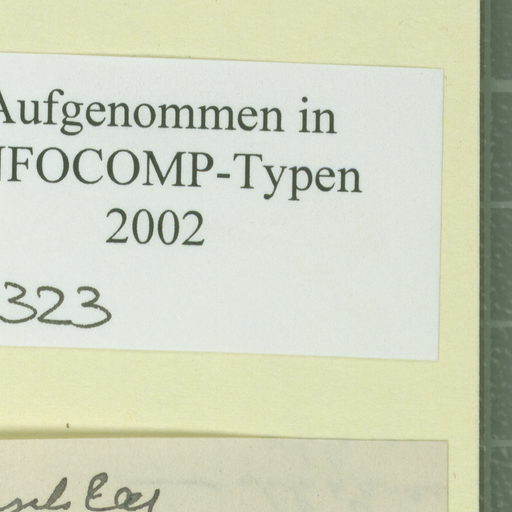 Aufgenommen in
NFOCOMP-Typen
2002
323